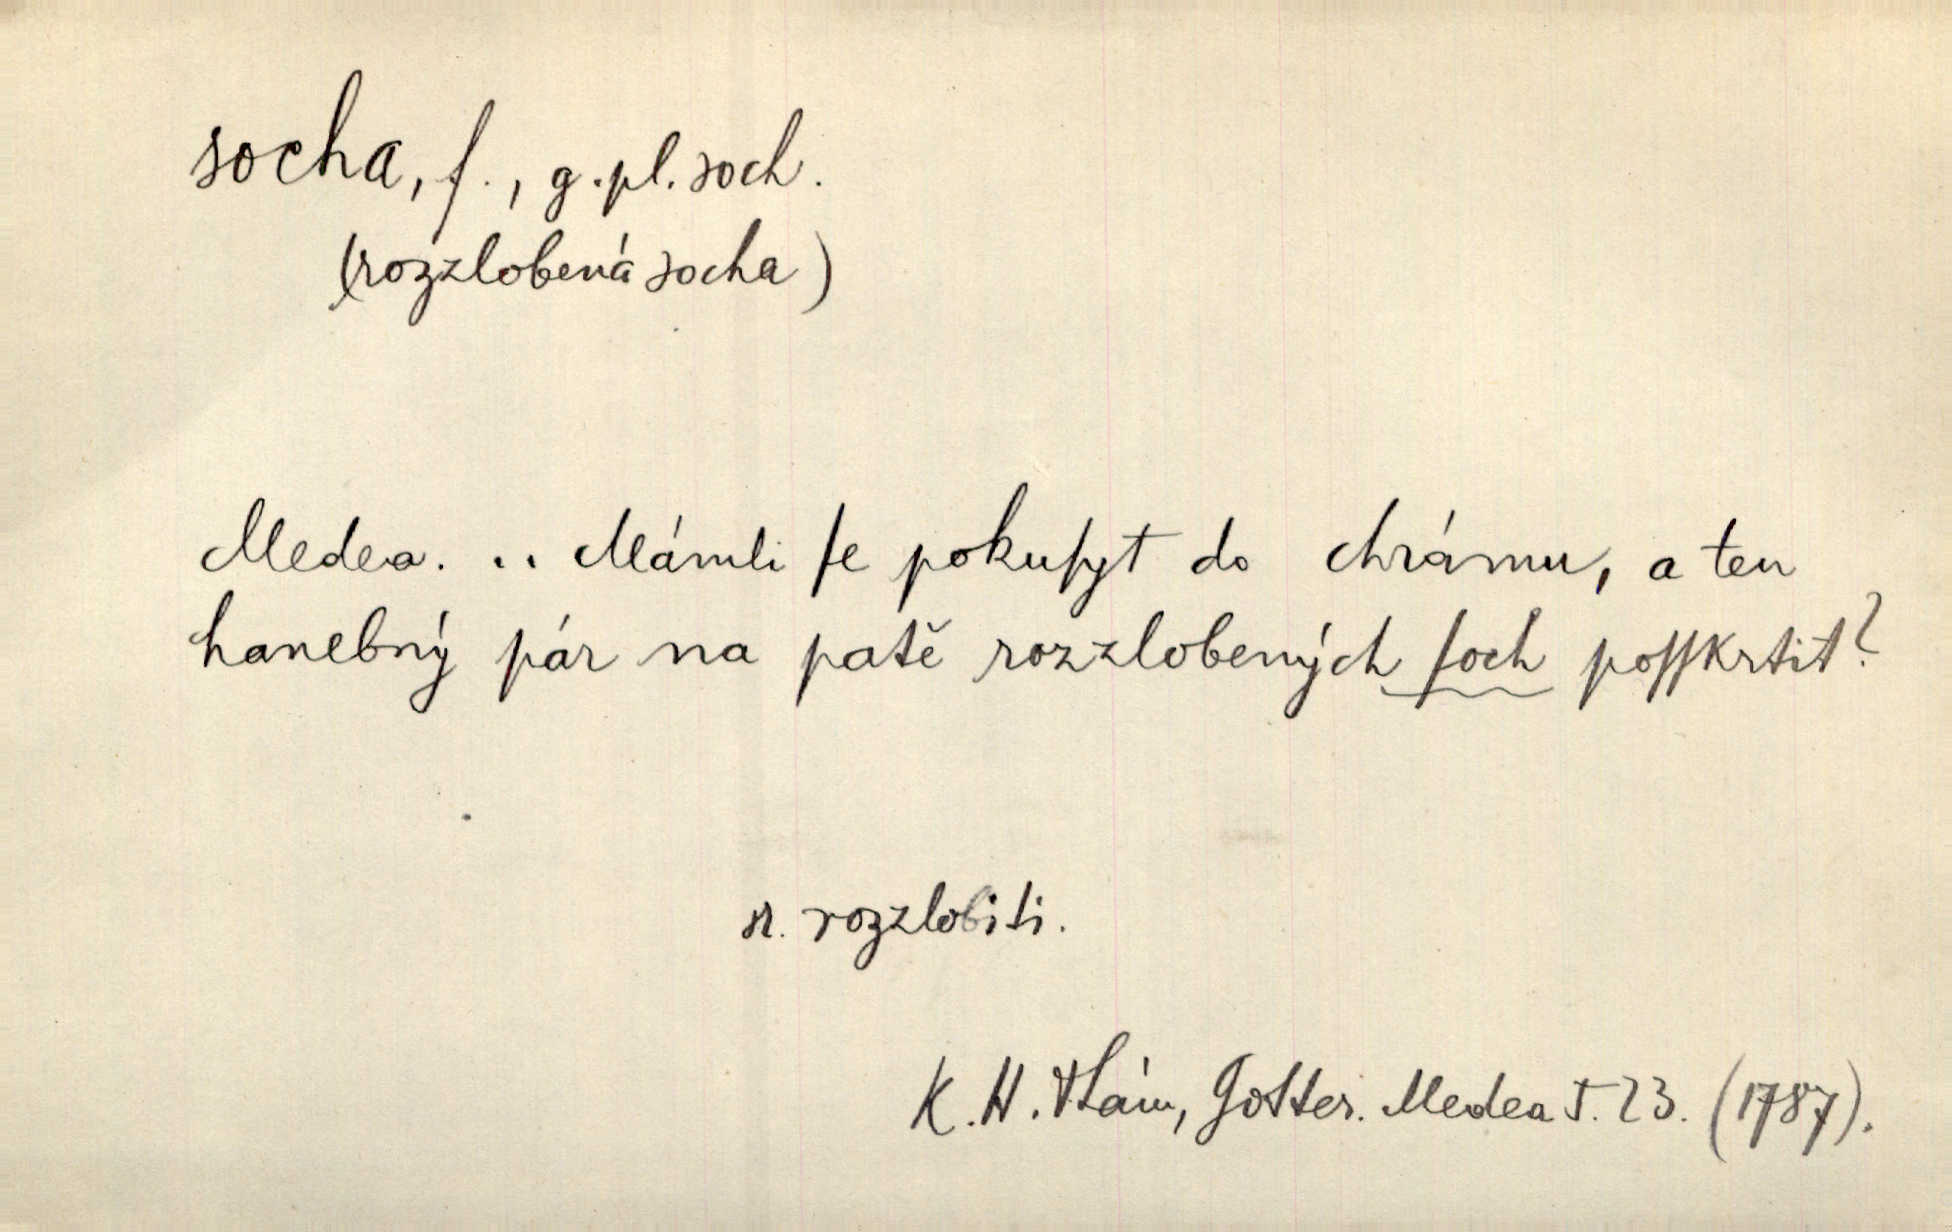 socha, f., g. pl. soch.
(rozzlobená socha)
Medea. .. Mámli ſe pokuſyt do chrámu, a ten
hanebný pár na patě rozzlobených ſoch poſſkrtit?
n. rozzlobiti.
K. H. Thám, Gotter. Medea S. 23. (1787).